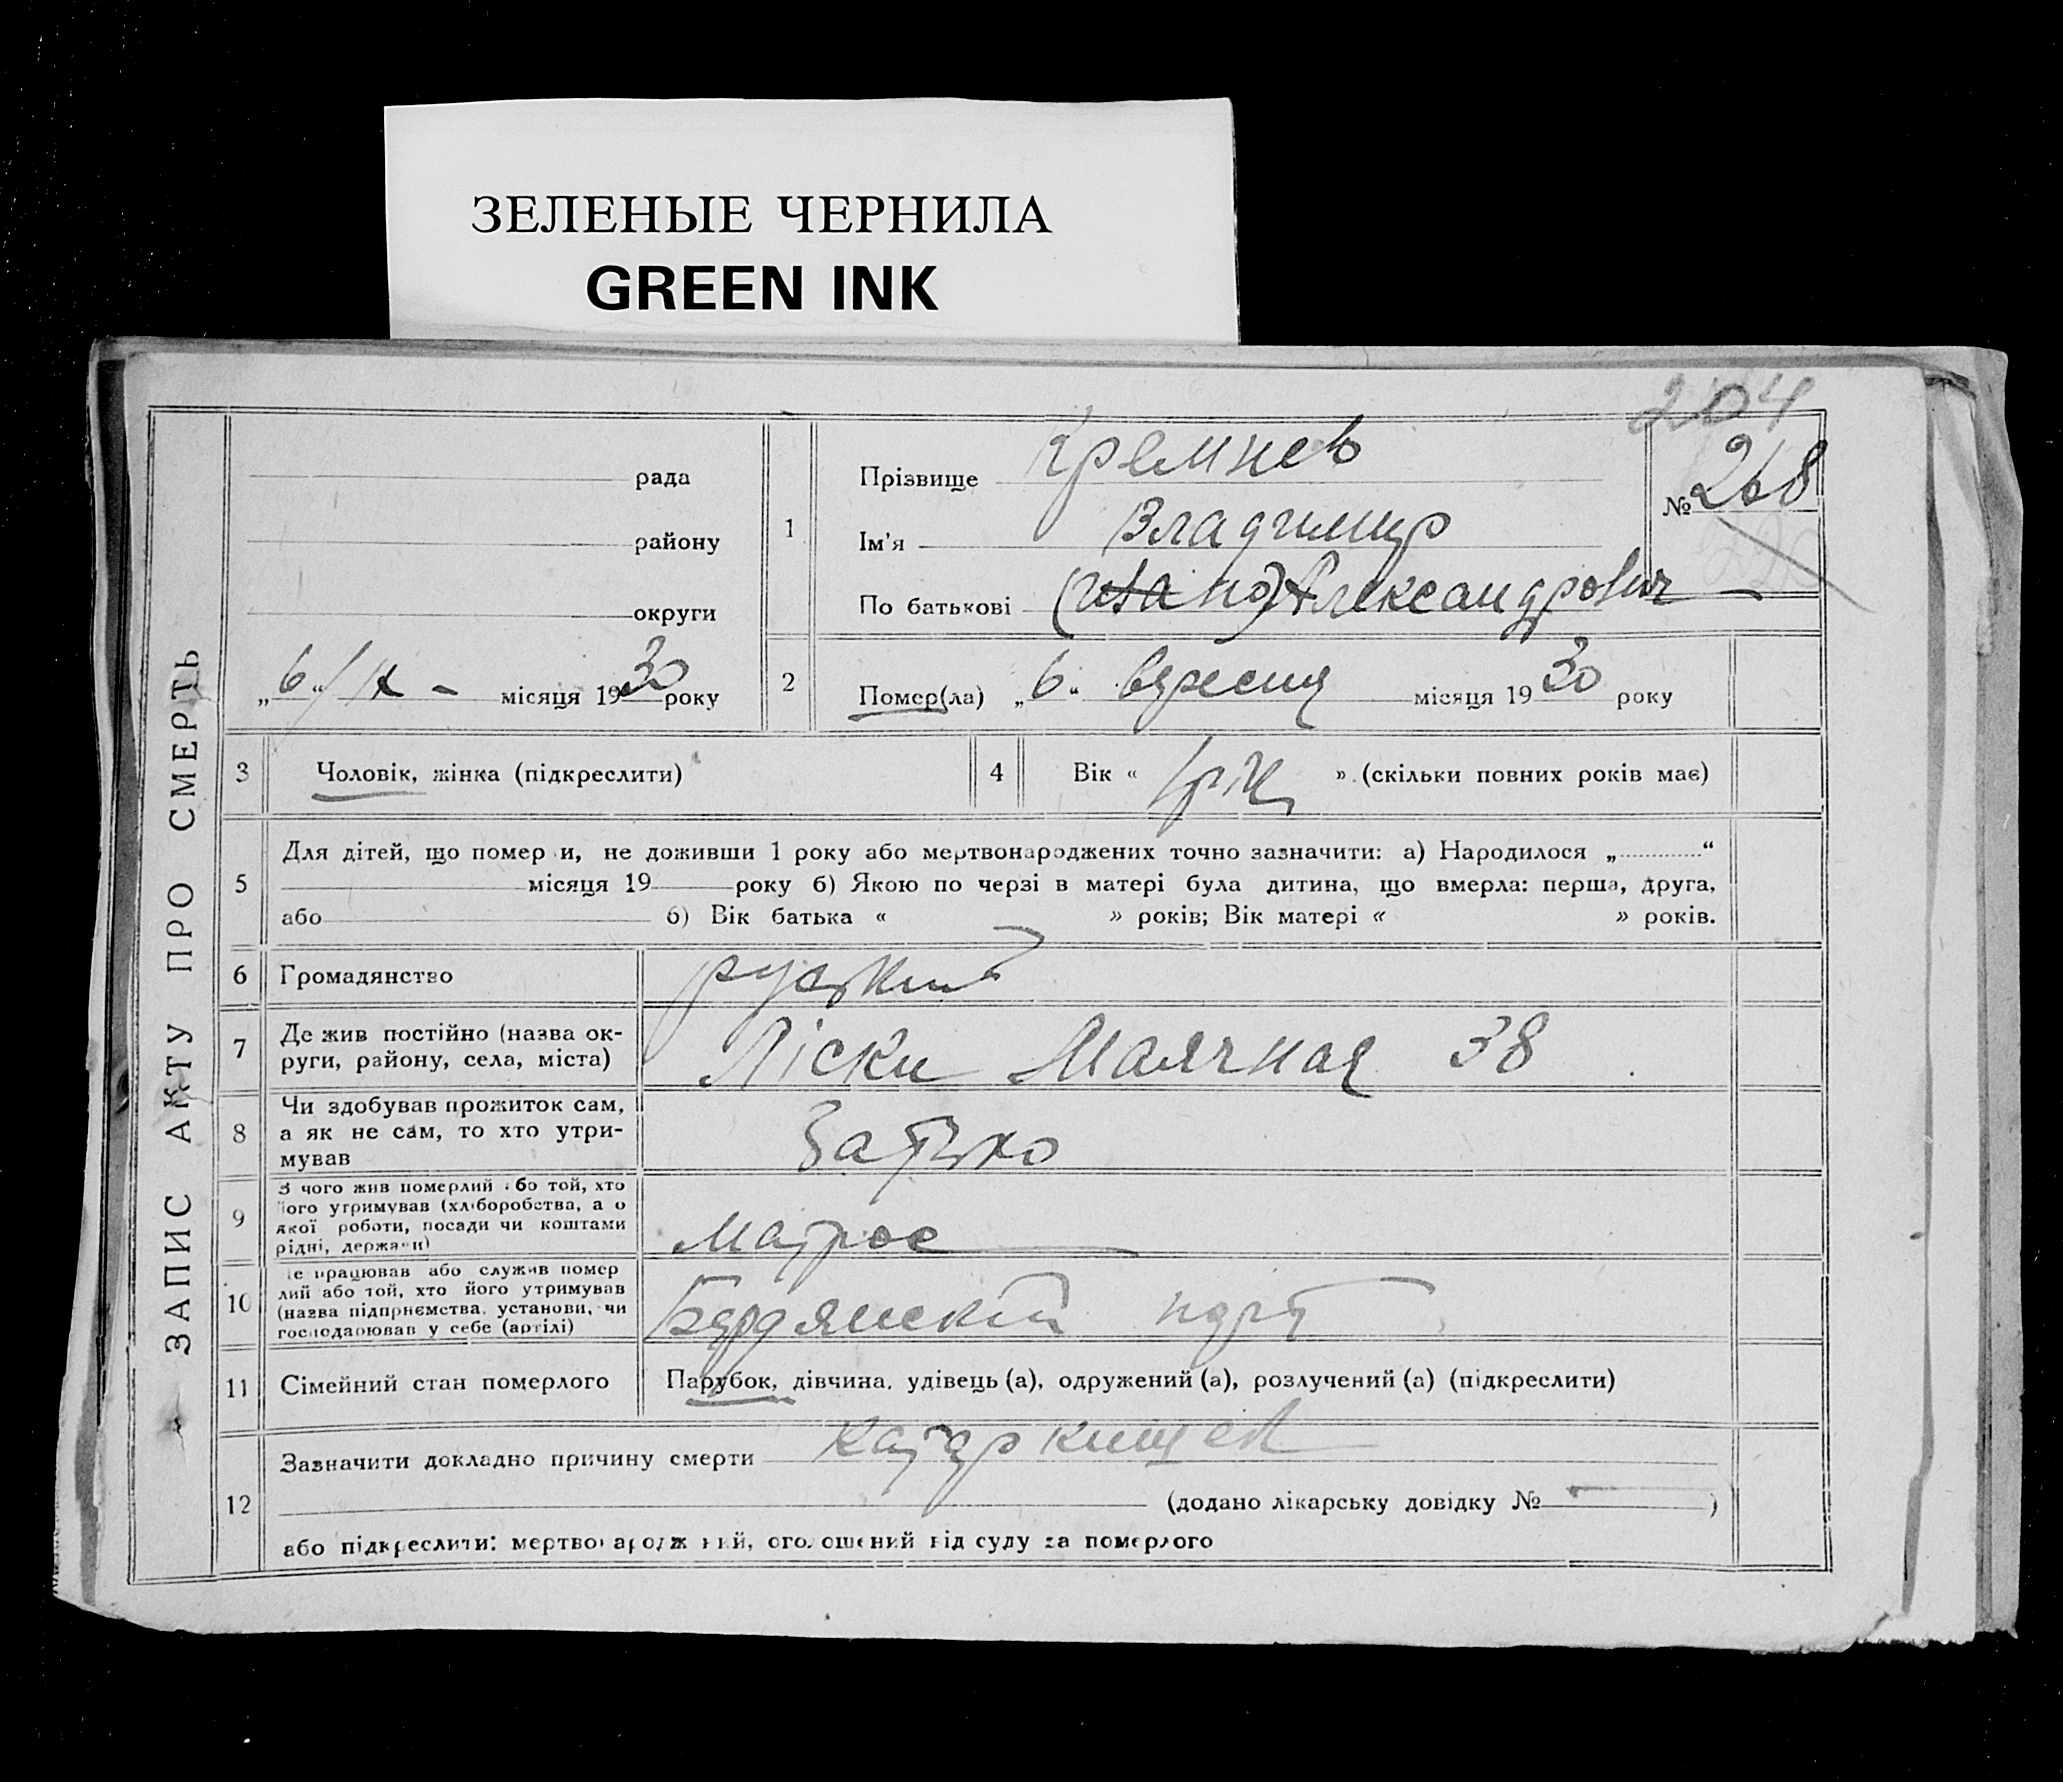 ЗЕЛЕНЫЕ ЧЕРНИЛА
GREEN INK
204
ЗАПИС АКТУ ПРО СМЕРТЬ
рада
району
округи
„6“/IX - місяця 1930 року
1
Прізвище Кремнев
Ім'я Владимир
По батькові Александрович
№ 268
2
Помер(ла) „6“ вересня місяця 1930 року
3
Чоловік, жінка (підкреслити)
4
Вік « 1 рік » (скільки повних років має)
5
Для дітей, що помер и, не доживши 1 року або мертвонароджених точно зазначити: а) Народилося „ “
місяця 19 року б) Якою по черзі в матері була дитина, що вмерла: перша, друга,
або б) Вік батька « » років; Вік матері « » років.
6
Громадянство руський
7
Де жив постійно (назва ок-
руги, району, села, міста)
Ліски Маячная 38
8
Чи здобував прожиток сам,
а як не сам, то хто утри-
мував
Батько
9
З чого жив померлий або той, хто
його утримував (хліборобства, а о
якої роботи, посади чи коштами
рідні, держави)
матрос
10
е працював або служив помер
лий або той, хто його утримував
(назва підприємства, установи, чи
господарював у себе (артілі)
Бердянский порт
11
Сімейний стан померлого
Парубок, дівчина, удівець (а), одружений (а), розлучений (а) (підкреслити)
12
Зазначити докладно причину смерти катар кишек
(додано лікарську довідку № )
або підкреслити: мертвонароджений, оголошений від суду за померлого